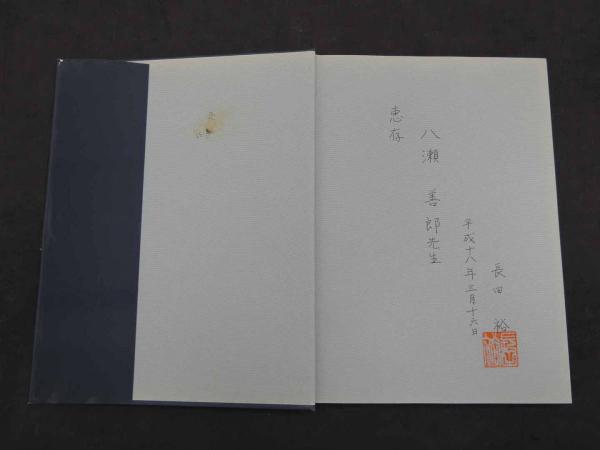 長田 裕
平成十八年三月十六日
八瀬 善郎先生
恵存